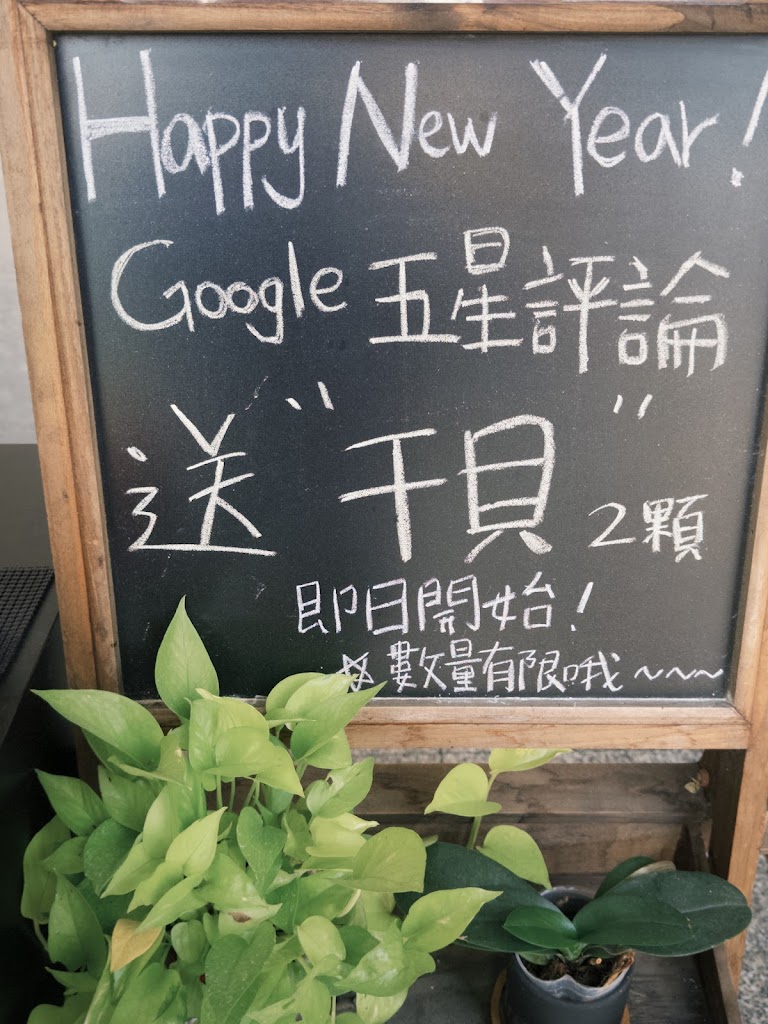 Happy New Year!
Google 五星評論
送"干貝"2顆
即日開始!
☆數量有限哦~~~~